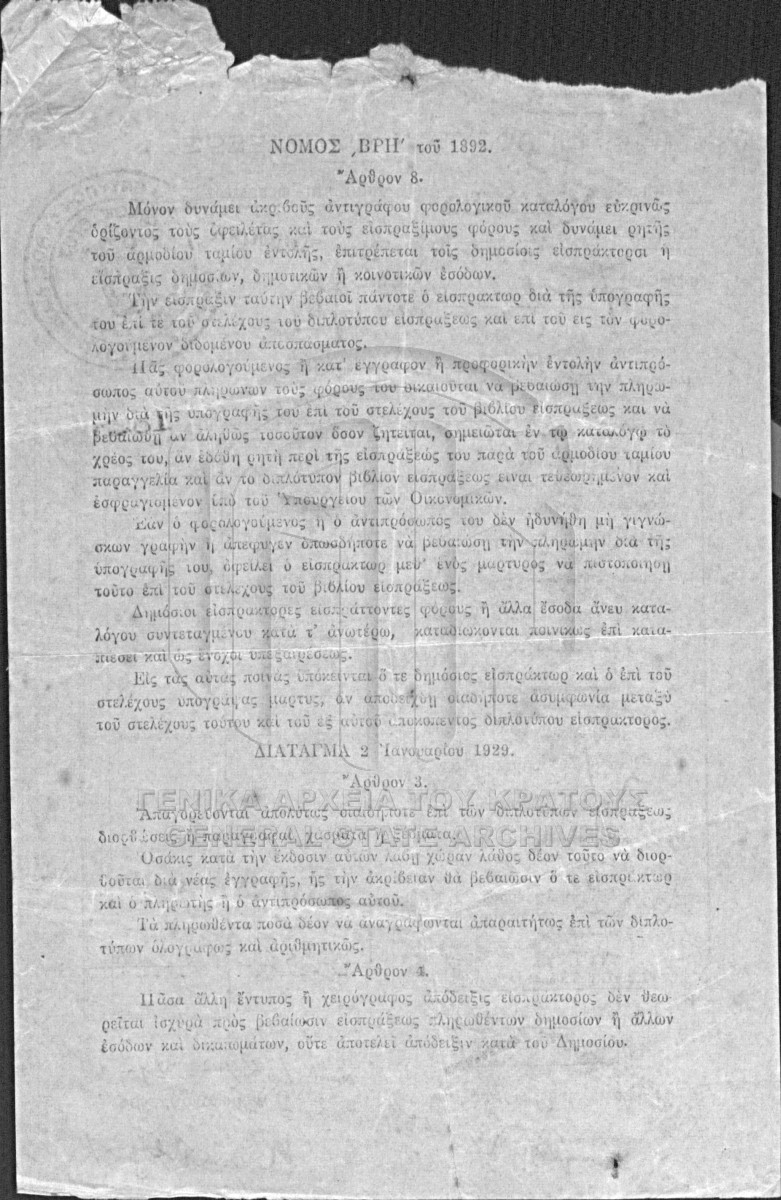 ΝΟΜΟΣ ͵ΒΡΗʹ τοῦ 1892.
Ἄρθρον 8.
Μόνον δυνάμει ἀκριβοῦς ἀντιγράφου φορολογικοῦ καταλόγου εὐκρινῶς
ὁρίζοντος τοὺς ὀφειλέτας καὶ τοὺς εἰσπραξίμους φόρους καὶ δυνάμει ρητῆς
τοῦ ἁρμοδίου ταμίου ἐντολῆς, ἐπιτρέπεται τοῖς δημοσίοις εἰσπράκτορσι ἡ
εἴσπραξις δημοσίων, δημοτικῶν ἢ κοινοτικῶν ἐσόδων.
Τὴν εἴσπραξιν ταύτην βεβαιοῖ πάντοτε ὁ εἰσπράκτωρ διὰ τῆς ὑπογραφῆς
του ἐπί τε τοῦ στελέχους τοῦ διπλοτύπου εἰσπράξεως καὶ ἐπὶ τοῦ εἰς τὸν φορο-
λογούμενον διδομένου ἀποσπάσματος.
Πᾶς φορολογούμενος ἢ κατ' ἔγγραφον ἢ προφορικὴν ἐντολὴν ἀντιπρό-
σωπος αὐτοῦ πληρώνων τοὺς φόρους του δικαιοῦται νὰ βεβαιώσῃ τὴν πληρω-
μὴν διὰ τῆς ὑπογραφῆς του ἐπὶ τοῦ στελέχους τοῦ βιβλίου εἰσπράξεως καὶ νὰ
βεβαιωθῇ ἂν ἀληθῶς τοσοῦτον ὅσον ζητεῖται, σημειῶται ἐν τῷ καταλόγῳ τὸ
χρέος του, ἂν ἐδόθη ρητὴ περὶ τῆς εἰσπράξεώς του παρὰ τοῦ ἁρμοδίου ταμίου
παραγγελία καὶ ἂν τὸ διπλότυπον βιβλίον εἰσπράξεως εἶναι τεθεωρημένον καὶ
ἐσφραγισμένον ὑπὸ τοῦ Ὑπουργείου τῶν Οἰκονομικῶν.
Ἐὰν ὁ φορολογούμενος ἢ ὁ ἀντιπρόσωπός του δὲν ἠδυνήθη μὴ γιγνώ-
σκων γραφὴν ἢ ἀπέφυγεν ὁπωσδήποτε νὰ βεβαιώσῃ τὴν πληρωμὴν διὰ τῆς
ὑπογραφῆς του, ὀφείλει ὁ εἰσπράκτωρ μεθ' ἑνὸς μάρτυρος νὰ πιστοποιήσῃ
τοῦτο ἐπὶ τοῦ στελέχους τοῦ βιβλίου εἰσπράξεως.
Δημόσιοι εἰσπράκτορες εἰσπράττοντες φόρους ἢ ἄλλα ἔσοδα ἄνευ κατα-
λόγου συντεταγμένου κατὰ τ' ἀνωτέρω, καταδιώκονται ποινικῶς ἐπὶ κατα-
πιέσει καὶ ὡς ἔνοχοι ὑπεξαιρέσεως.
Εἰς τὰς αὐτὰς ποινὰς ὑπόκεινται ὅ τε δημόσιος εἰσπράκτωρ καὶ ὁ ἐπὶ τοῦ
στελέχους ὑπογράψας μάρτυς, ἂν ἀποδειχθῇ οἱαδήποτε ἀσυμφωνία μεταξὺ
τοῦ στελέχους τούτου καὶ τοῦ ἐξ αὐτοῦ ἀποκοπέντος διπλοτύπου εἰσπράκτορος.
ΔΙΑΤΑΓΜΑ 2 Ἰανουαρίου 1929.
Ἄρθρον 3.
ΓΕΝΙΚΑ ΑΡΧΕΙΑ ΤΟΥ ΚΡΑΤΟΥΣ
Ἀπαγορεύονται ἀπολύτως οἱαιδήποτε ἐπὶ τῶν διπλοτύπων εἰσπράξεως
GENERAL STATE ARCHIVES
διορθώσεις ἢ παραγραφαί, χάσματα ἢ ξέσματα.
Ὁσάκις κατὰ τὴν ἔκδοσιν αὐτῶν λάβῃ χώραν λάθος δέον τοῦτο νὰ διορ-
θοῦται διὰ νέας ἐγγραφῆς, ἧς τὴν ἀκρίβειαν θὰ βεβαιῶσιν ὅ τε εἰσπράκτωρ
καὶ ὁ πληρωτὴς ἢ ὁ ἀντιπρόσωπος αὐτοῦ.
Τὰ πληρωθέντα ποσὰ δέον νὰ ἀναγράφωνται ἀπαραιτήτως ἐπὶ τῶν διπλο-
τύπων ὁλογράφως καὶ ἀριθμητικῶς.
Ἄρθρον 4.
Πᾶσα ἄλλη ἔντυπος ἢ χειρόγραφος ἀπόδειξις εἰσπράκτορος δὲν θεω-
ρεῖται ἰσχυρὰ πρὸς βεβαίωσιν εἰσπράξεως πληρωθέντων δημοσίων ἢ ἄλλων
ἐσόδων καὶ δικαιωμάτων, οὔτε ἀποτελεῖ ἀπόδειξιν κατὰ τοῦ Δημοσίου.